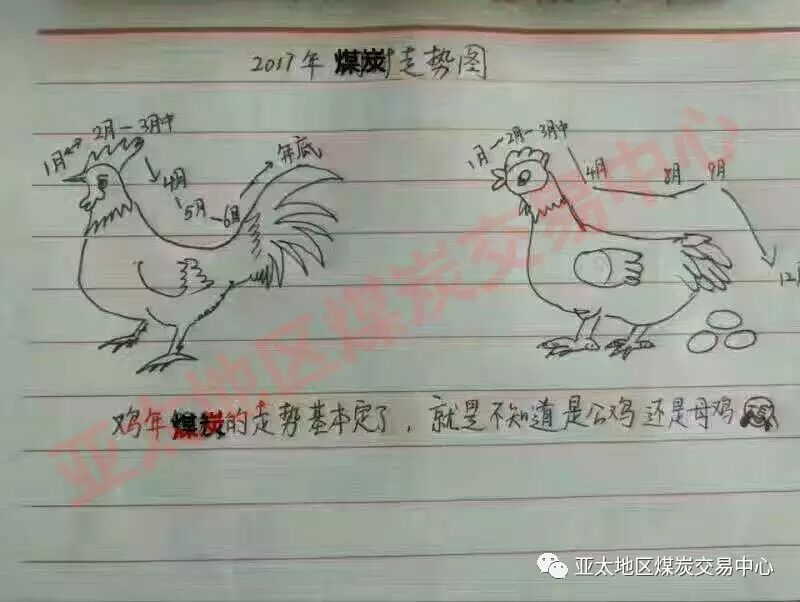 2017年煤炭走势图
1月
2月-3月中
4月
5月-6月
年底
1月-2月-3月中
4月
8月
9月
12月
鸡年煤炭的走势基本定了，就是不知道是公鸡还是母鸡
亚太地区煤炭交易中心
亚太地区煤炭交易中心